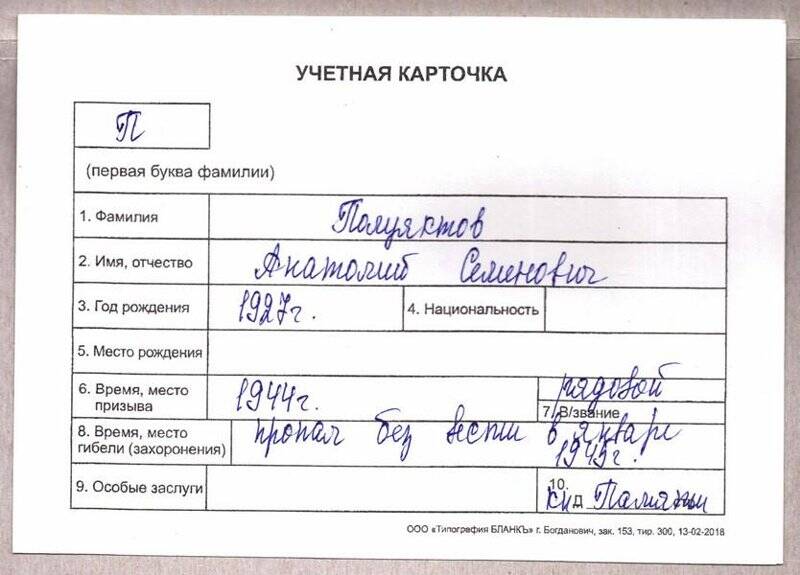 УЧЕТНАЯ КАРТОЧКА
П
(первая буква фамилии)
1. Фамилия Полуяктов
2. Имя, отчество Анатолий Семенович
3. Год рождения 1927г. 4. Национальность
5. Место рождения
6. Время, место призыва 1944г. рядовой
7. В/звание
8. Время, место гибели (захоронения) пропал без вести в январе 1945г.
9. Особые заслуги 10. кн Памяти
ООО «Типография БЛАНКЪ» г. Богданович, зак. 153, тир. 300, 13-02-2018